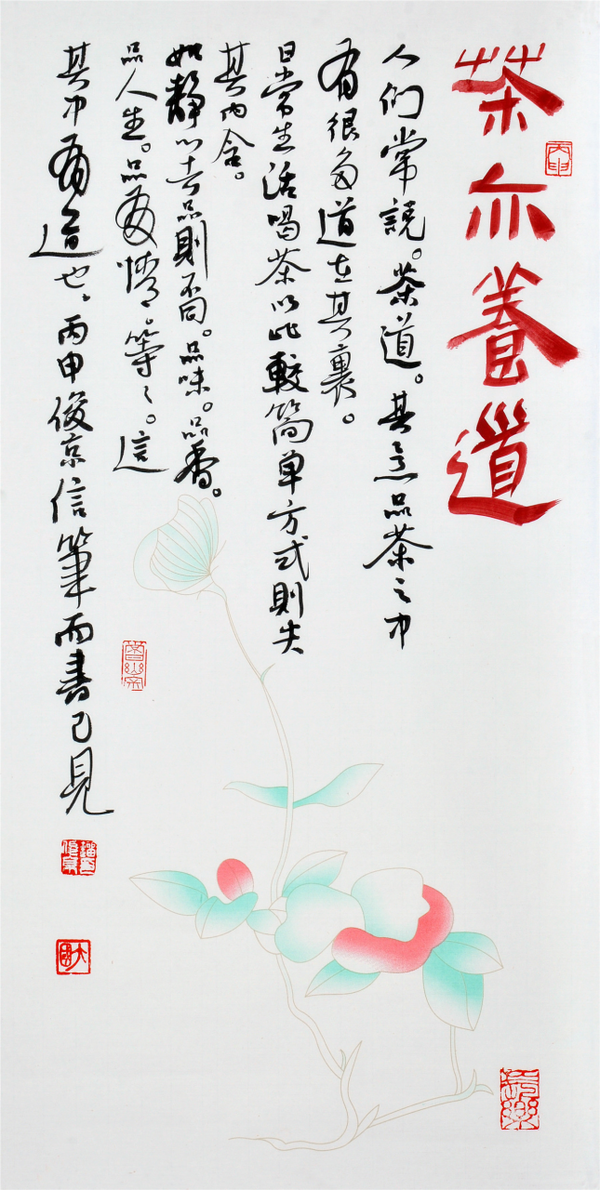 茶亦養道
丙申
人们常說。茶道。其意品茶之中
有很多道在其裏。
日常生活喝茶以比較简单方式則失
其内含。
如静心去品則不同。品味。品香。
品人生。品情。等々。這
其中有道也。丙申俊京信筆而書己見
長樂